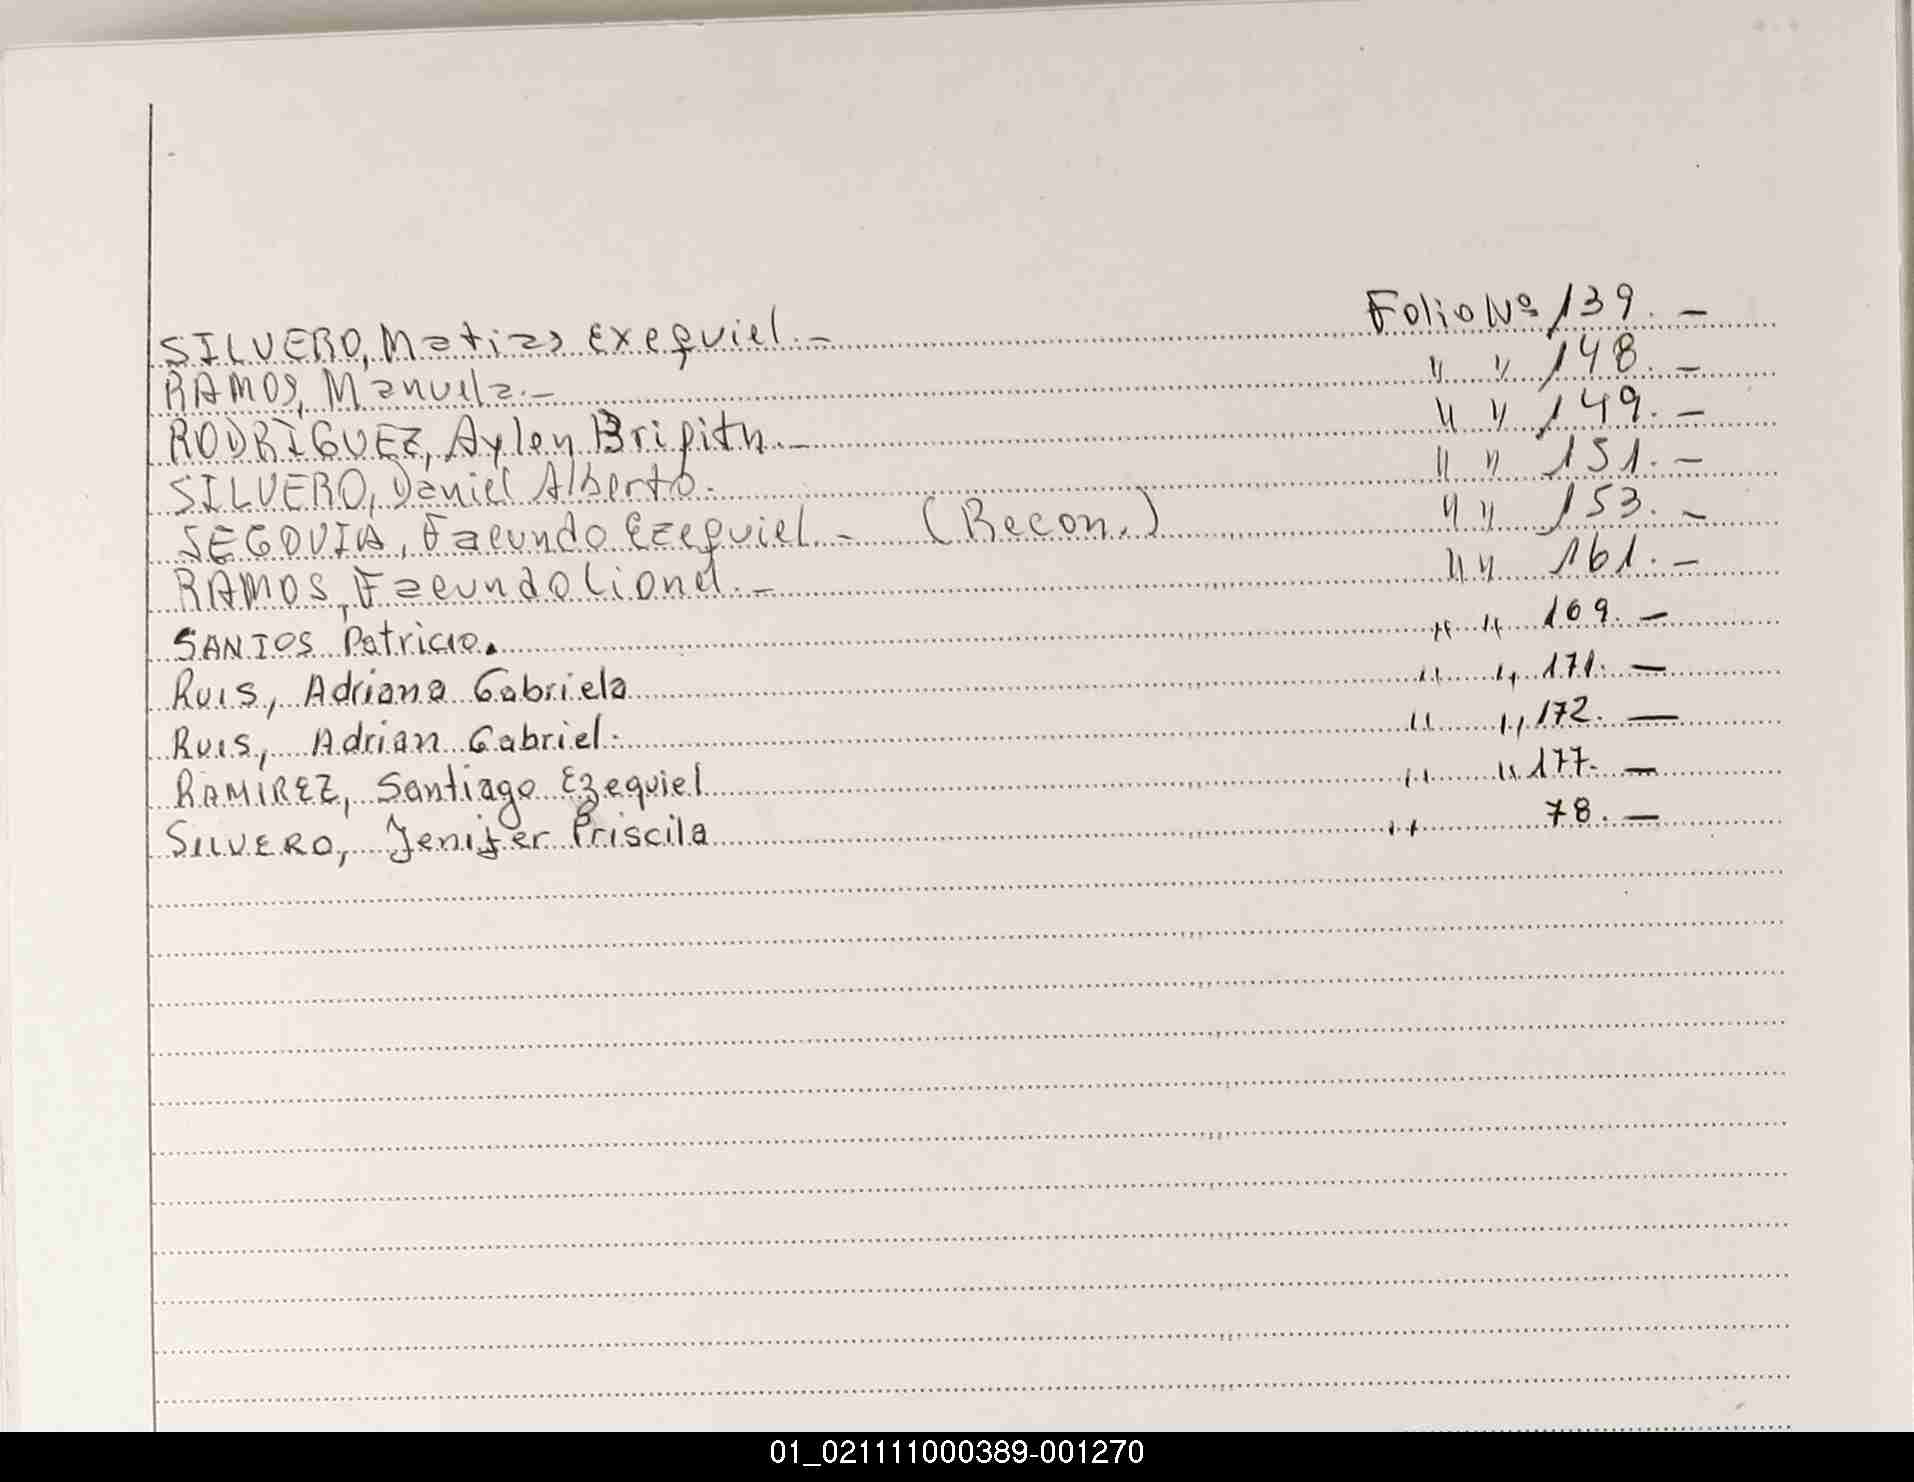 SILVERO, Matias Exequiel.- Folio Nº 139.-
RAMOS, Manuela.- " " 148.-
RODRIGUEZ, Aylen Brigith.- " " 149.-
SILVERO, Daniel Alberto. " " 151.-
SEGOVIA, Facundo Ezequiel.- (Recon.) " " 153.-
RAMOS, Facundo Lionel.- " " 161.-
SANTOS Patricio. " " 169.-
Ruis, Adriana Gabriela " " 171.-
Ruis, Adrian Gabriel. " " 172.-
RAMIREZ, Santiago Ezequiel " " 177.-
SILVERO, Jenifer Priscila " 78.-
01_021111000389-001270